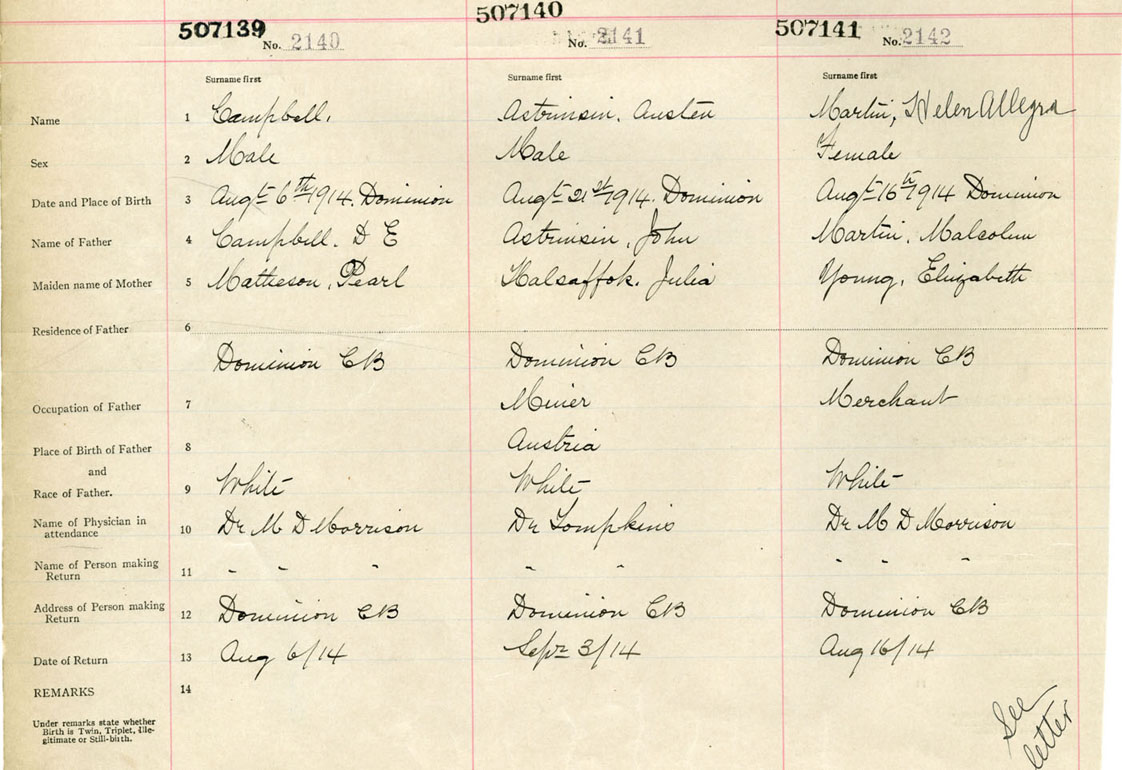 507139 No. 2140 507140 No. 2141 507141 No. 2142
Surname first Surname first Surname first
Name 1 Campbell. Astrinsin. Austen Martin, Helen Allegra
Sex 2 Male Male Female
Date and Place of Birth 3 Augt 6th 1914. Dominion Augt 21st 1914. Dominion Augt 16th 1914 Dominion
Name of Father 4 Campbell. D E Astrinsin, John Martin. Malcolm
Maiden name of Mother 5 Matheson, Pearl Halsaffok. Julia Young, Elizabeth
Residence of Father 6
Dominion CB Dominion CB Dominion CB
Occupation of Father 7 Miner Merchant
Place of Birth of Father 8 Austria
and
Race of Father. 9 White White White
Name of Physician in
attendance 10 Dr M D Morrison Dr Tompkins Dr M D Morrison
Name of Person making
Return 11 - - - - - - - -
Address of Person making
Return 12 Dominion CB Dominion CB Dominion CB
Date of Return 13 Aug 6/14 Sept 3/14 Aug 16/14
REMARKS 14
Under remarks state whether
Birth is Twin, Triplet, Ille-
gitimate or Still-birth.
See
letter